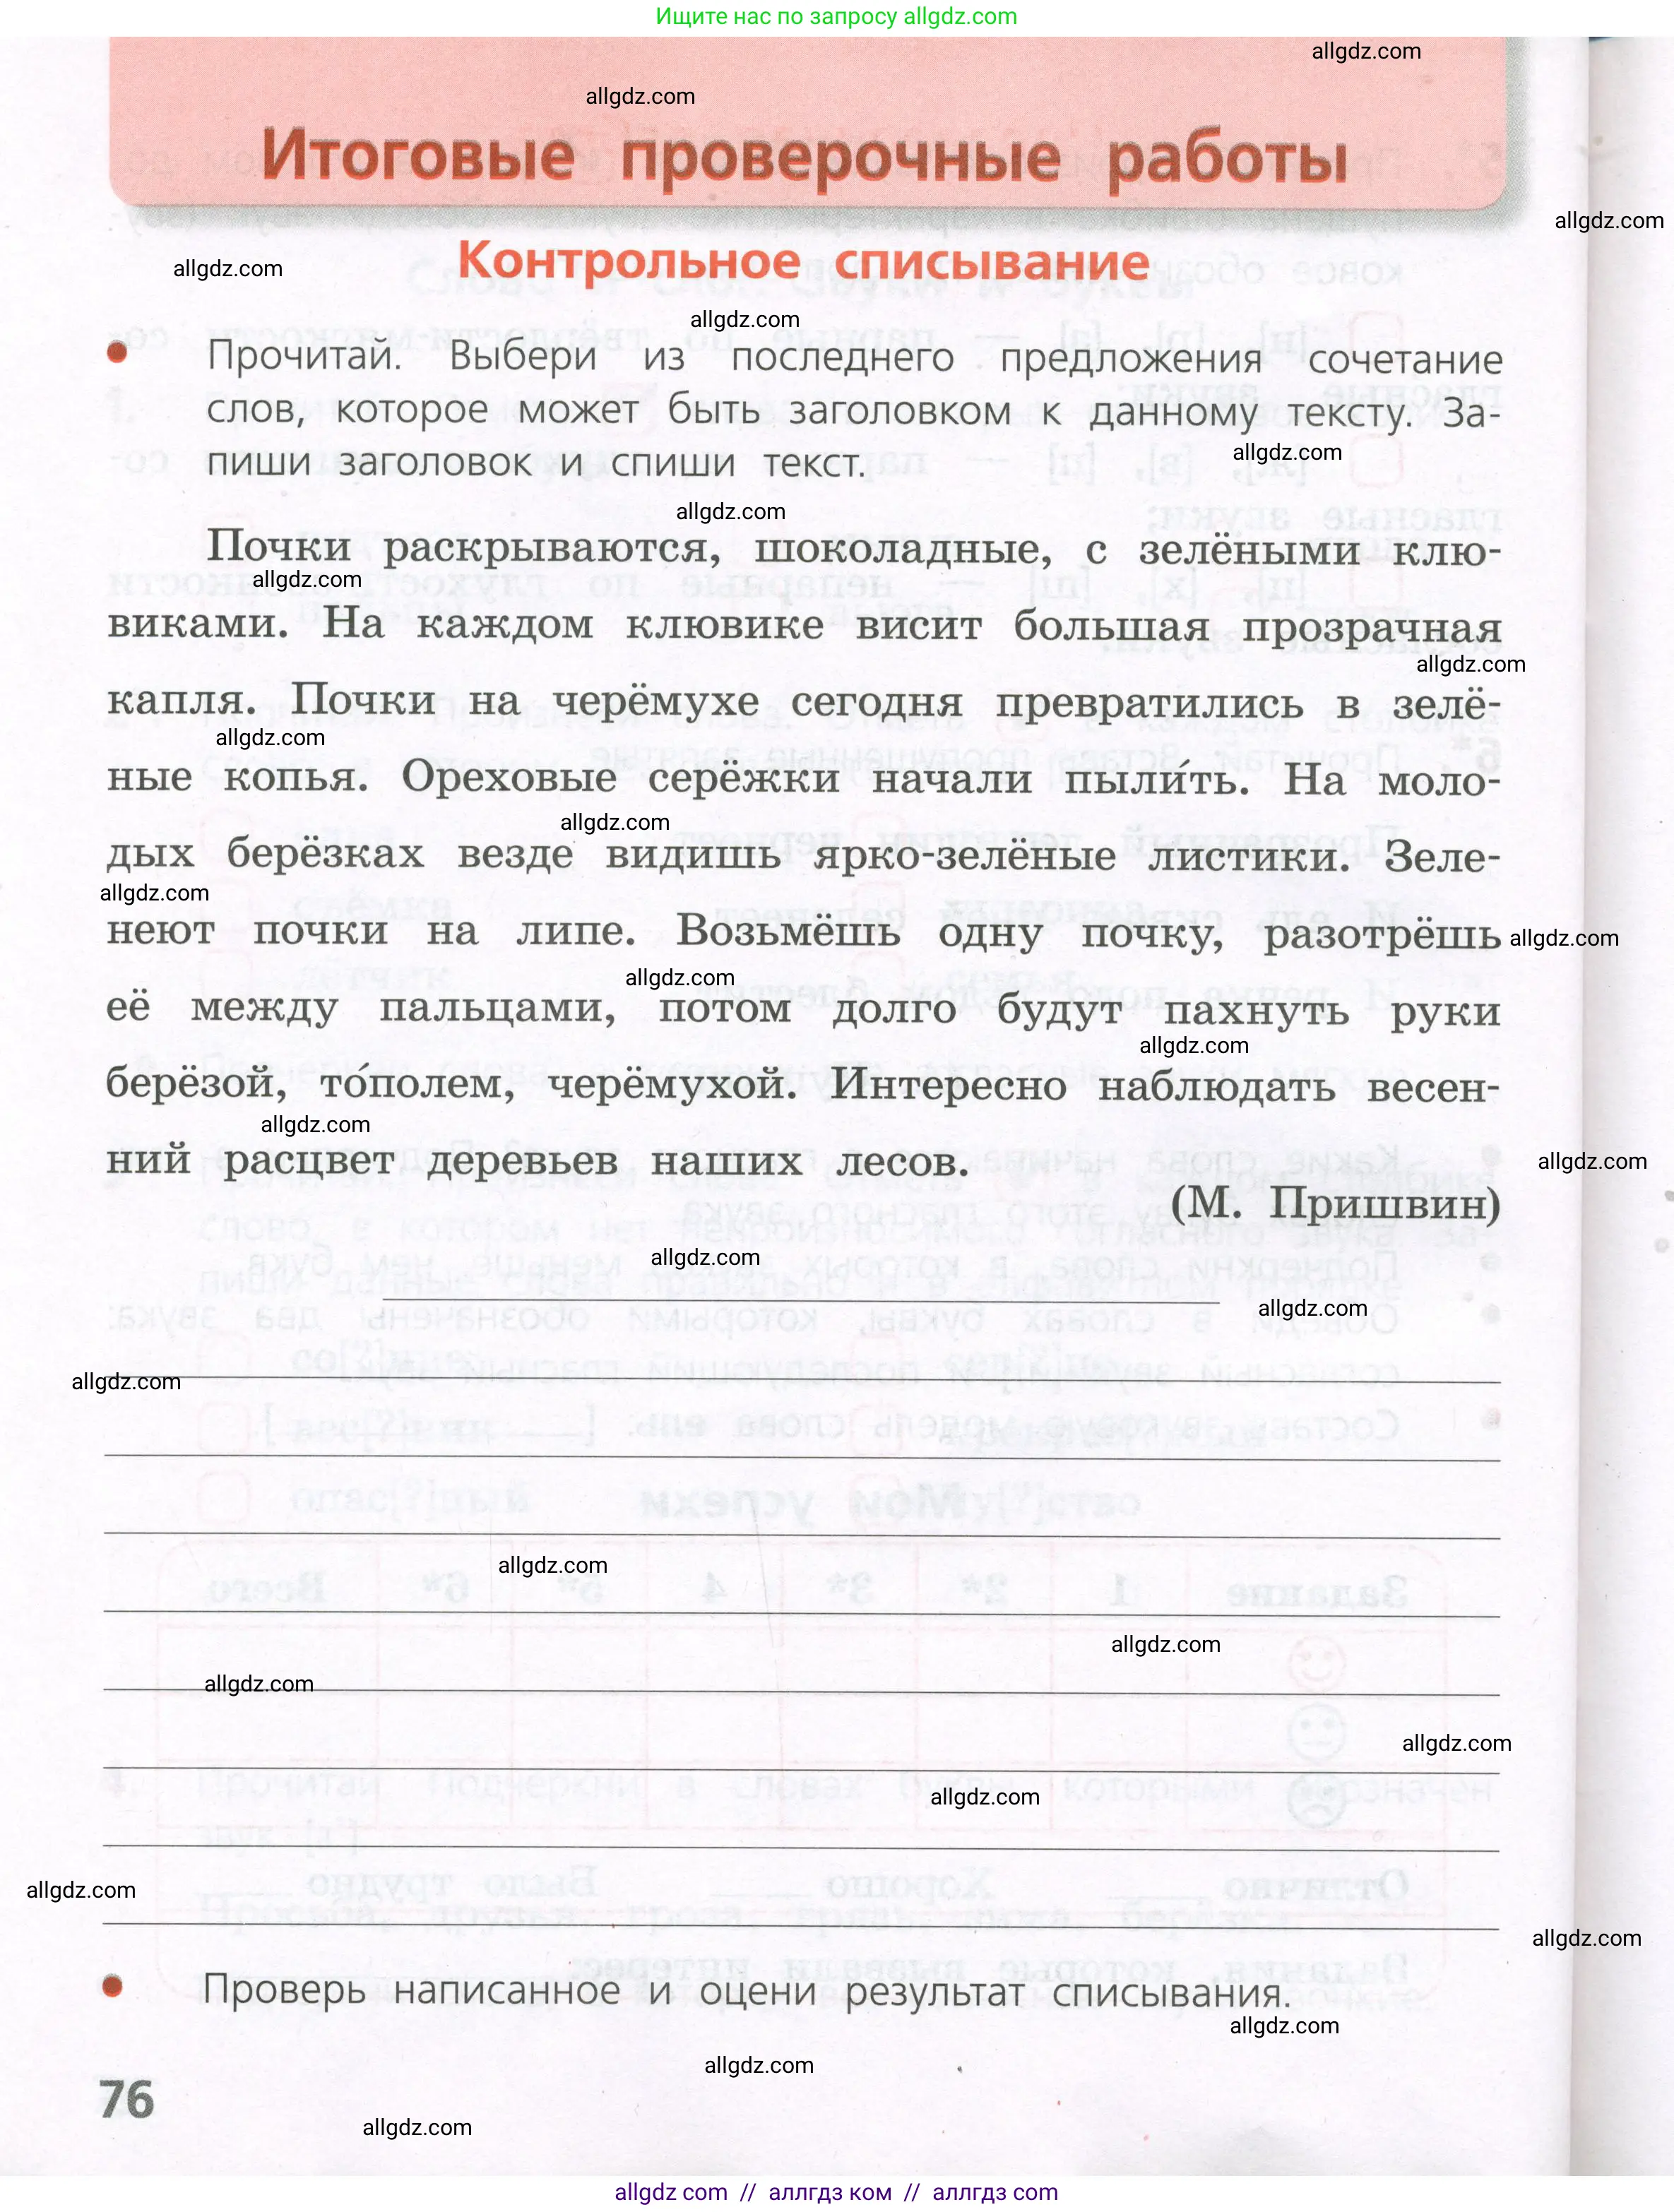 Ищите нас по запросу allgdz.com
allgdz.com
allgdz.com
Итоговые проверочные работы
allgdz.com
Контрольное списывание
allgdz.com
allgdz.com
Прочитай. Выбери из последнего предложения сочетание
слов, которое может быть заголовком к данному тексту. За-
allgdz.com
пиши заголовок и спиши текст.
allgdz.com
Почки раскрываются, шоколадные, с зелёными клю-
allgdz.com
виками. На каждом клювике висит большая прозрачная
allgdz.com
капля. Почки на черёмухе сегодня превратились в зелё-
allgdz.com
ные копья. Ореховые серёжки начали пыли́ть. На моло-
allgdz.com
дых берёзках везде видишь ярко-зелёные листики. Зеле-
allgdz.com
неют почки на липе. Возьмёшь одну почку, разотрёшь
allgdz.com
allgdz.com
её между пальцами, потом долго будут пахнуть руки
allgdz.com
берёзой, то́полем, черёмухой. Интересно наблюдать весен-
allgdz.com
ний расцвет деревьев наших лесов.
allgdz.com
(М. Пришвин)
allgdz.com
allgdz.com
allgdz.com
allgdz.com
allgdz.com
allgdz.com
allgdz.com
allgdz.com
allgdz.com
allgdz.com
Проверь написанное и оцени результат списывания.
allgdz.com
allgdz.com
76
allgdz.com
allgdz com // аллгдз ком // аллгдз com